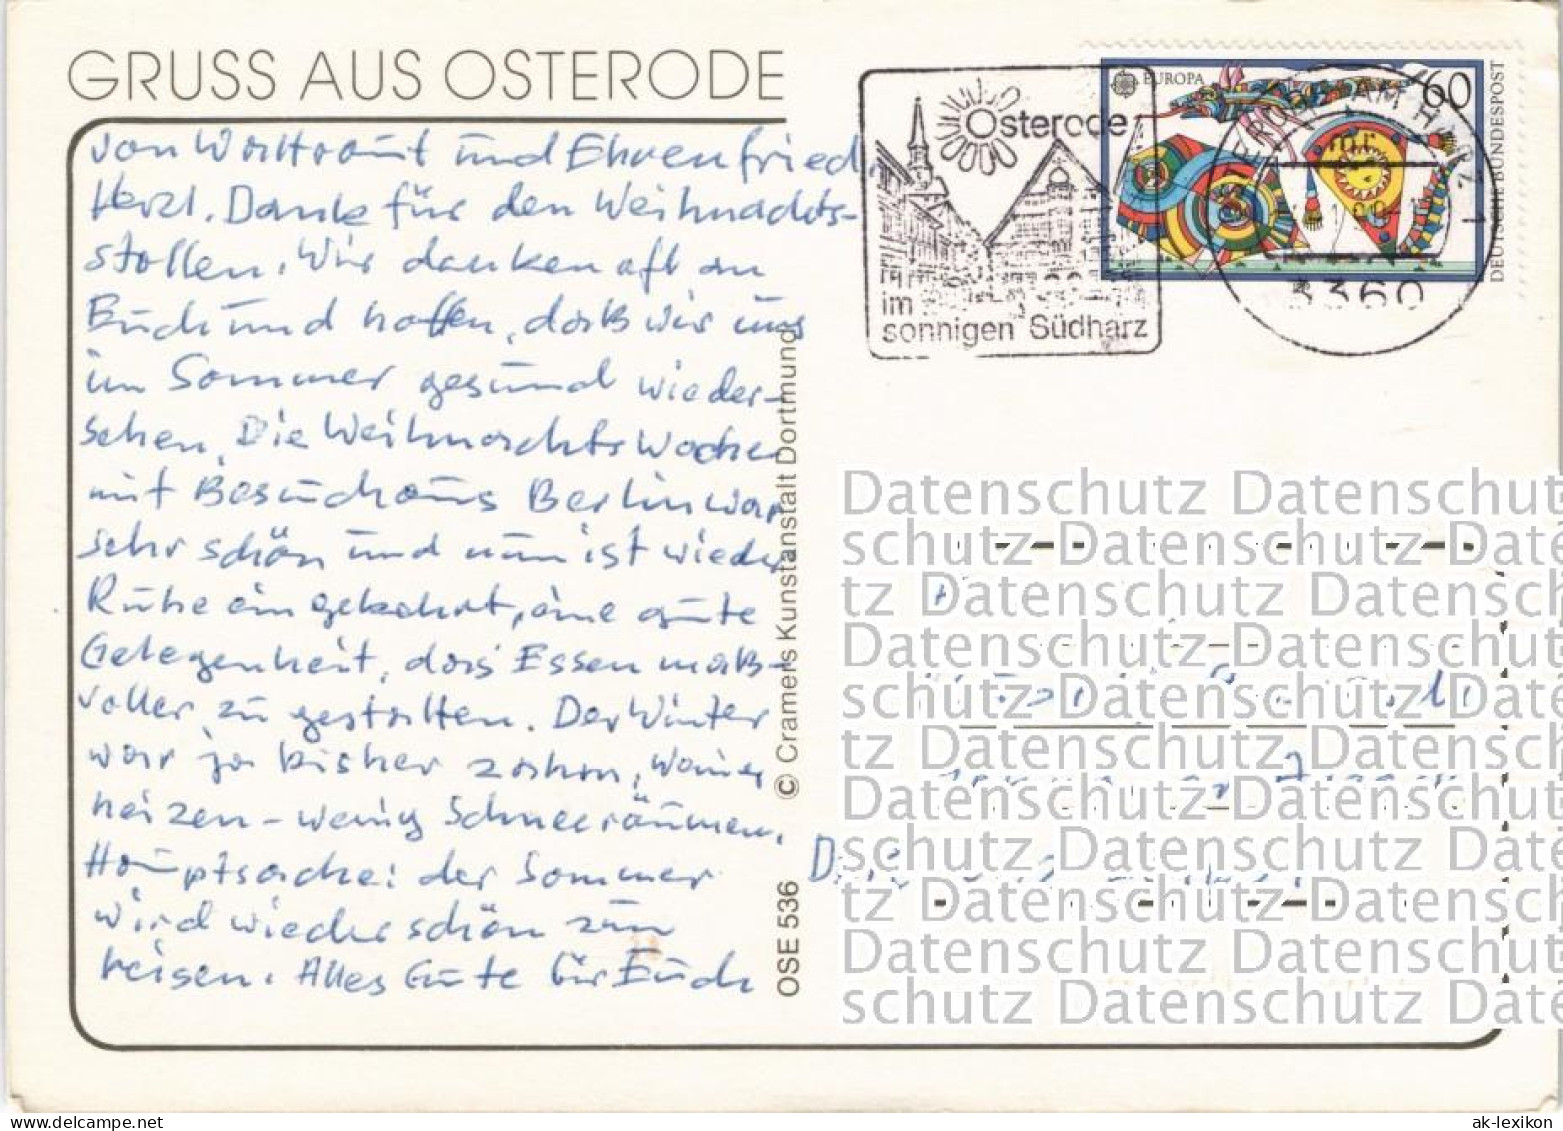 GRUSS AUS OSTERODE
von Waltraut und Ehrenfried
Herzl. Dank für den Weihnachts-
stollen. Wir danken oft an
Euch und hoffen, daß wir uns
im Sommer gesund wieder-
sehen. Die Weihnachtswoche
mit Besuch aus Berlin war
sehr schön und nun ist wieder
Ruhe eingekehrt, eine gute
Gelegenheit, das Essen maß-
voller zu gestalten. Der Winter
war ja bisher zahm, wenig
heizen - wenig Schneeräumen.
Hauptsache: der Sommer
wird wieder schön zum
reisen. Alles Gute für Euch
© Cramers Kunstanstalt Dortmund
OSE 536
Osterode
im
sonnigen Südharz
EUROPA
60
DEUTSCHE BUNDESPOST
AM HARZ 1
3360
Datenschutz Datenschut
schutz Datenschutz Datensch
tz Datenschutz Datenschutz
Datenschutz Datenschut
schutz Datenschutz Datensch
tz Datenschutz Datenschutz
Datenschutz Datenschut
schutz Datenschutz Datensch
tz Datenschutz Datenschutz
Datenschutz Datenschut
schutz Datenschutz Datensch
ak-lexikon